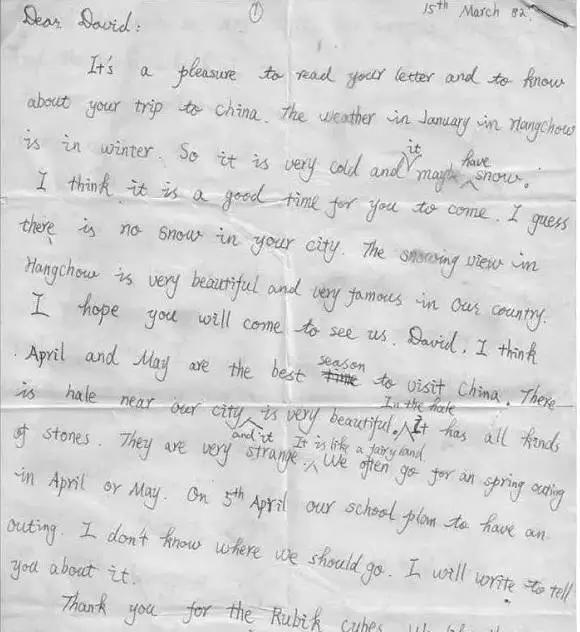 ①
15th March 82.
Dear David:
It's a pleasure to read your letter and to know
about your trip to China. The weather in January in Hangchow
is in winter. So it is very cold and it maybe have snow.
I think it is a good time for you to come. I guess
there is no snow in your city. The snowing view in
Hangchow is very beautiful and very famous in our country.
I hope you will come to see us. David, I think
April and May are the best season to visit China. There
is hale near our city and it is very beautiful. In the hale It has all kinds
of stones. They are very strange. It is like a fairyland We often go for an spring outing
in April or May. On 5th April our school plan to have an
outing. I don't know where we should go. I will write to tell
you about it.
Thank you for the Rubik cubes.